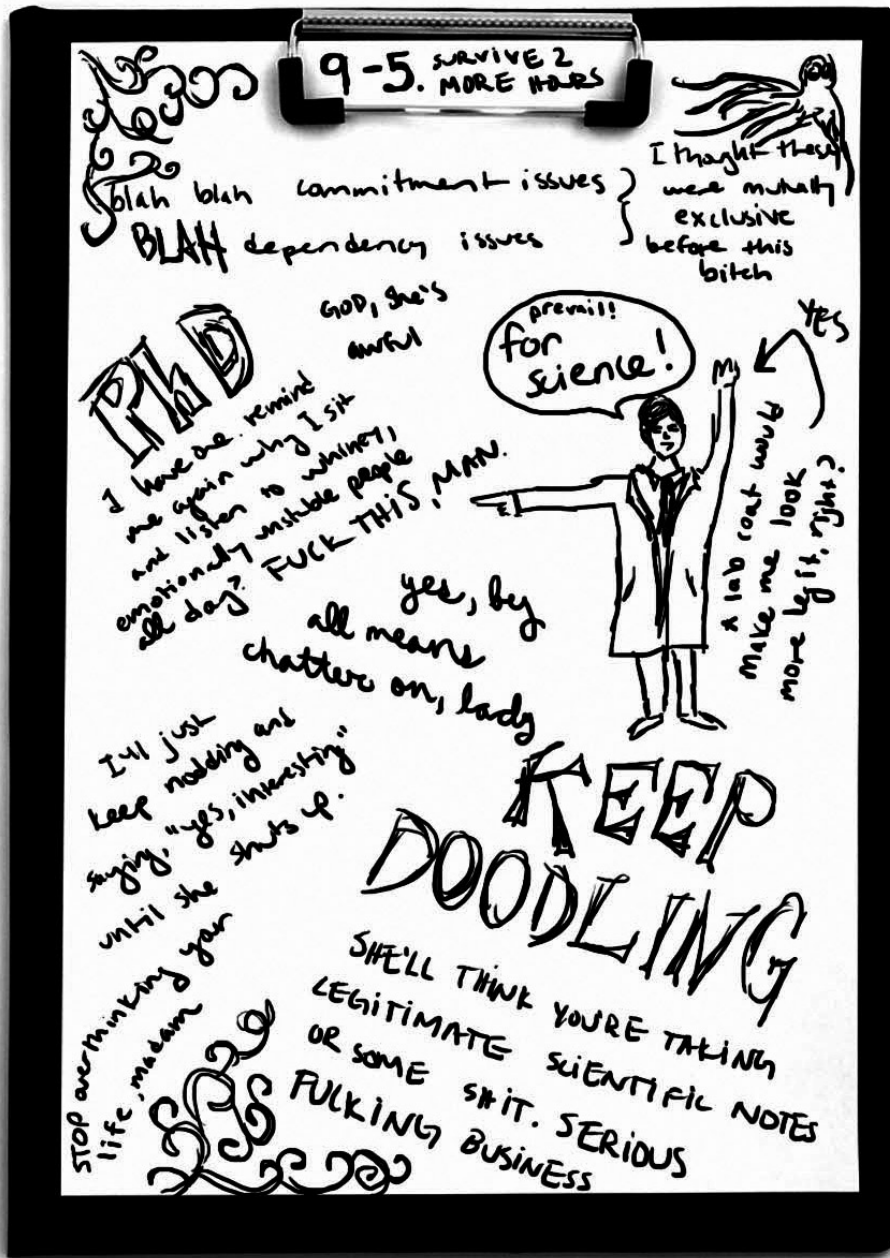 9-5. SURVIVE 2
MORE HOURS
blah blah commitment issues
BLAH dependency issues
I thought these
were mutually
exclusive
before this
bitch
GOD, she's
awful
PhD
I have one. remind
me again why I sit
and listen to whiney,
emotionally unstable people
all day? FUCK THIS, MAN.
prevail!
for
science!
YES
A lab coat would
make me look
more legit, right?
yes, by
all means
chatter on, lady
I'll just
keep nodding and
saying, "yes, interesting"
until she shuts up.
KEEP
DOODLING
SHE'LL THINK YOU'RE TAKING
LEGITIMATE SCIENTIFIC NOTES
OR SOME SHIT. SERIOUS
FUCKING BUSINESS
STOP overthinking your
life, madam